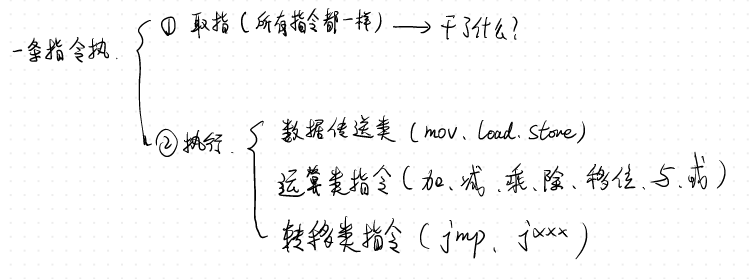 一条指令执.
① 取指（所有指令都一样）→ 干了什么？
② 执行.
数据传送类（mov、load、store）
运算类指令（加、减、乘、除、移位、与、或）
转移类指令（jmp、jxxx）